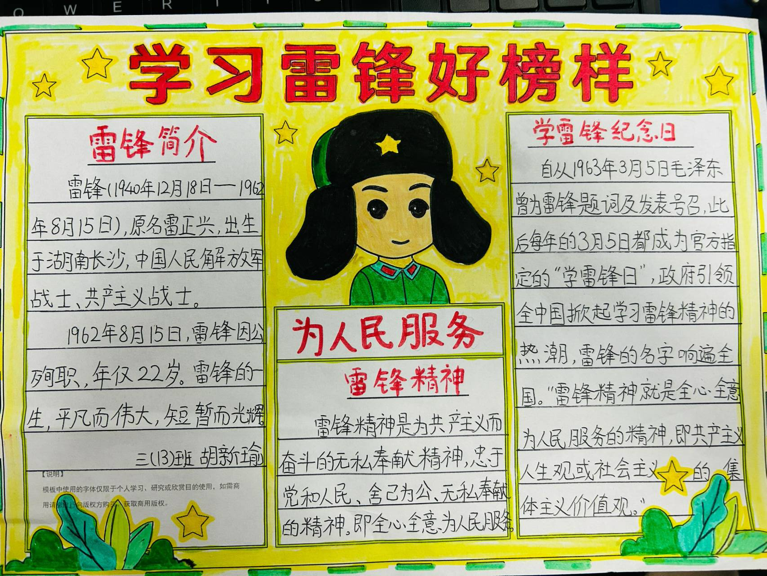 学习雷锋好榜样
雷锋简介
雷锋(1940年12月18日——1962
年8月15日),原名雷正兴,出生
于湖南长沙,中国人民解放军
战士、共产主义战士。
1962年8月15日,雷锋因公
殉职,年仅22岁。雷锋的一
生,平凡而伟大,短暂而光辉
三(13)班 胡新瑜
【说明】
模板中使用的字体仅限于个人学习、研究或欣赏目的使用,如需商
用请 版权方购 获取商用版权。
为人民服务
雷锋精神
雷锋精神是为共产主义而
奋斗的无私奉献精神,忠于
党和人民、舍己为公、无私奉献
的精神。即全心全意为人民服务
学雷锋纪念日
自从1963年3月5日毛泽东
曾为雷锋题词及发表号召,此
后每年的3月5日都成为官方指
定的“学雷锋日”,政府引领
全中国掀起学习雷锋精神的
热潮,雷锋的名字响遍全
国。“雷锋精神就是全心全意
为人民服务的精神,即共产主义
人生观或社会主义的 集
体主义价值观。”